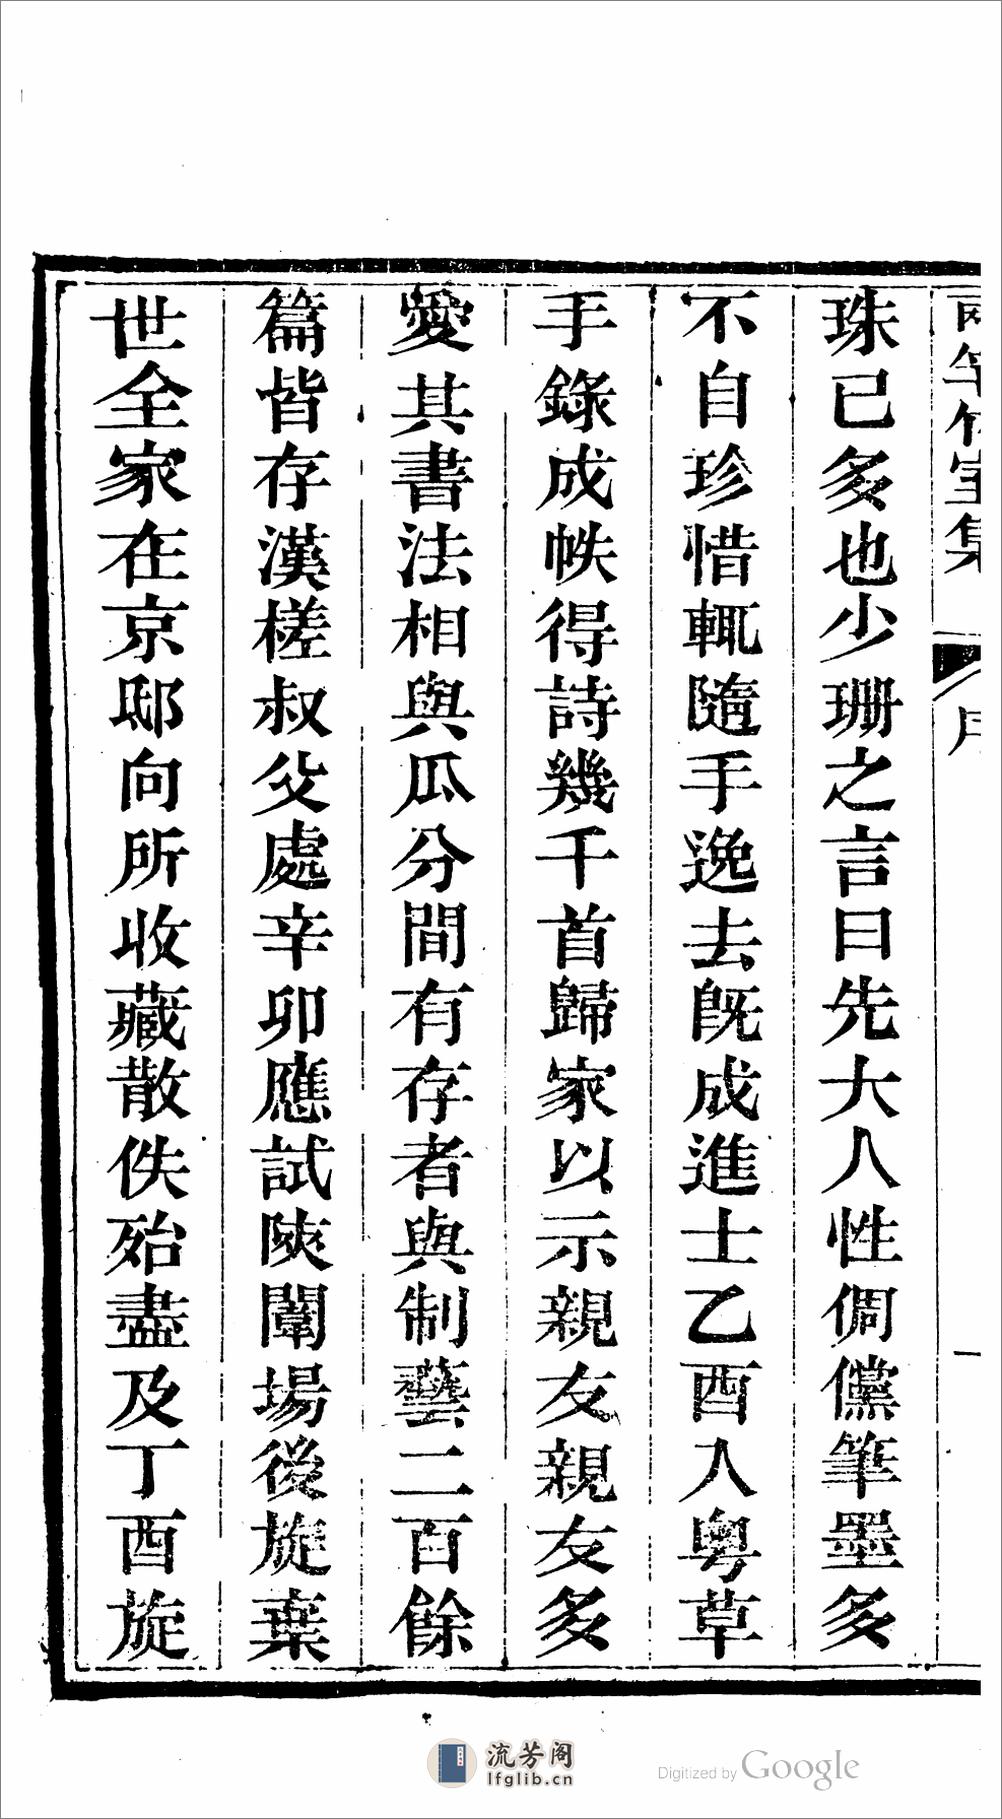 竹室集
珠已多也少珊之言曰先大人性倜儻筆墨多
不自珍惜輒隨手逸去旣成進士乙酉入粤草
手錄成帙得詩幾千首歸家以示親友親友多
愛其書法相與瓜分間有存者與制藝二百餘
篇皆存漢槎叔父處辛卯應試陝闈場後旋棄
世全家在京邸向所收藏散佚殆盡及丁酉旋
流芳阁
lfglib.cn
Digitized by Google